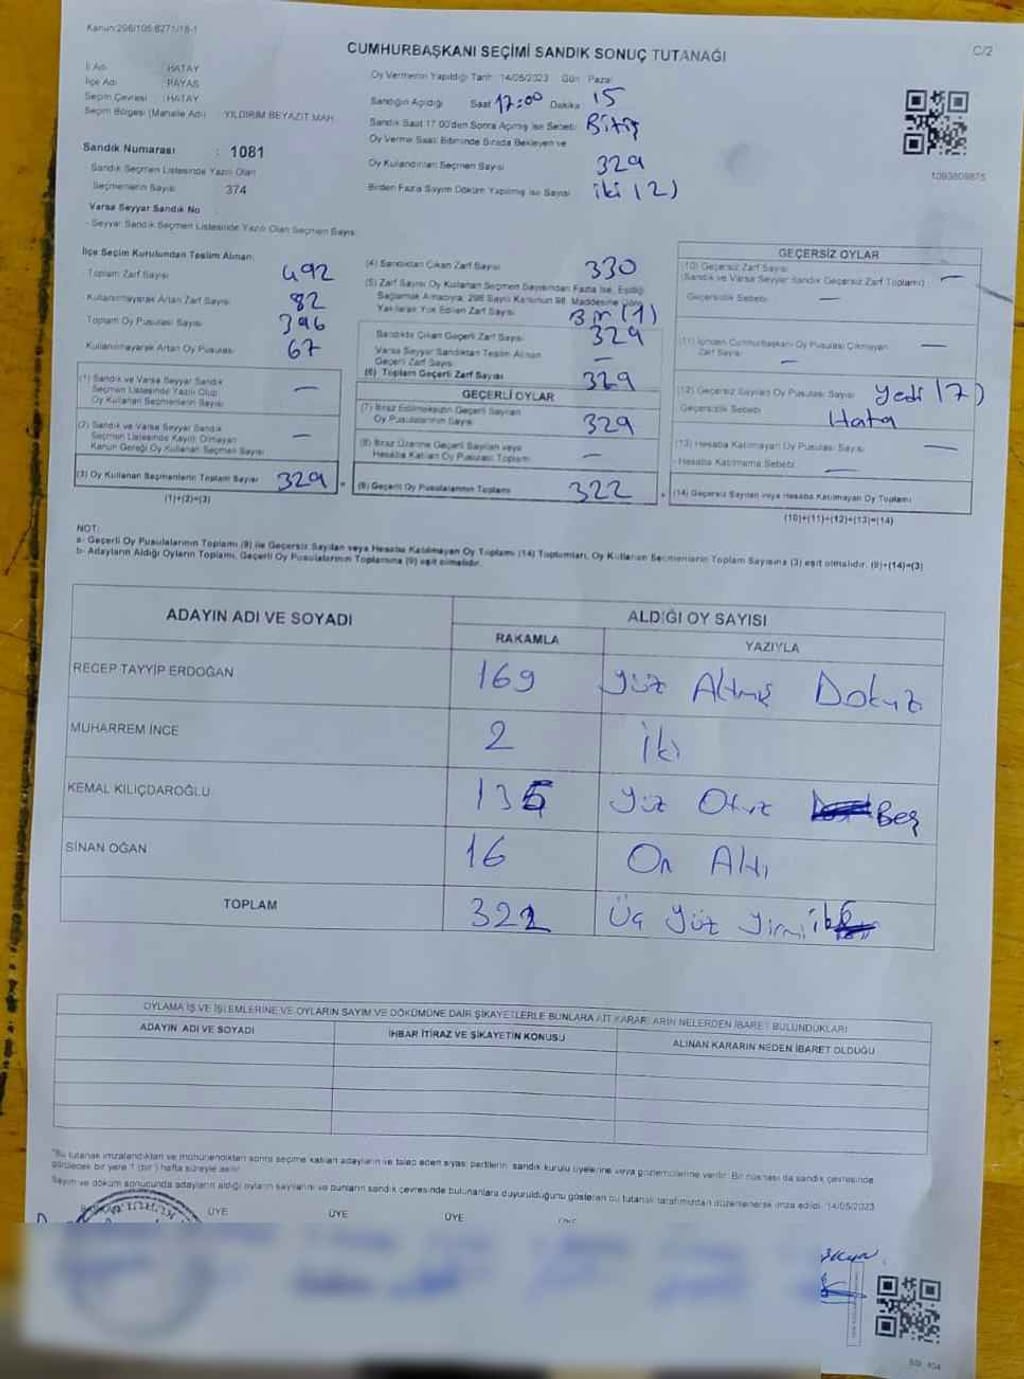 Kanun:298/105 6271/18-1
C/2
CUMHURBAŞKANI SEÇİMİ SANDIK SONUÇ TUTANAĞI
İl Adı : HATAY
İlçe Adı : PAYAS
Seçim Çevresi : HATAY
Seçim Bölgesi (Mahalle Adı) YILDIRIM BEYAZIT MAH.
Sandık Numarası : 1081
Sandık Seçmen Listesinde Yazılı Olan
Seçmenlerin Sayısı 374
Varsa Seyyar Sandık No
- Seyyar Sandık Seçmen Listesinde Yazılı Olan Seçmen Sayısı
Oy Vermenin Yapıldığı Tarih 14/05/2023 Gün Pazar
Sandığın Açıldığı Saat 17:00 Dakika 15
Sandık Saat 17.00'den Sonra Açılmış İse Sebebi Bitiş
Oy Verme Saati Bitiminde Sırada Bekleyen ve
Oy Kullandırılan Seçmen Sayısı 329
Birden Fazla Sayım Döküm Yapılmış İse Sayısı iki (2)
1093809875
İlçe Seçim Kurulundan Teslim Alınan:
Toplam Zarf Sayısı 492
Kullanılmayarak Artan Zarf Sayısı 82
Toplam Oy Pusulası Sayısı 396
Kullanılmayarak Artan Oy Pusulası 67
(1) Sandık ve Varsa Seyyar Sandık
Seçmen Listesinde Yazılı Olup
Oy Kullanan Seçmenlerin Sayısı —
(2) Sandık ve Varsa Seyyar Sandık
Seçmen Listesinde Kayıtlı Olmayan
Kanun Gereği Oy Kullanan Seçmen Sayısı —
(3) Oy Kullanan Seçmenlerin Toplam Sayısı 329
(1)+(2)=(3)
(4) Sandıktan Çıkan Zarf Sayısı 330
(5) Zarf Sayısı Oy Kullanan Seçmen Sayısından Fazla İse, Eşitliği
Sağlamak Amacıyla, 298 Sayılı Kanunun 98. Maddesine Göre
Yakılarak Yok Edilen Zarf Sayısı Bir (1)
Sandıkta Çıkan Geçerli Zarf Sayısı 329
Varsa Seyyar Sandıktan Teslim Alınan
Geçerli Zarf Sayısı —
(6) Toplam Geçerli Zarf Sayısı 329
GEÇERLİ OYLAR
(7) İtiraz Edilmeksizin Geçerli Sayılan
Oy Pusulalarının Sayısı 329
(8) İtiraz Üzerine Geçerli Sayılan veya
Hesaba Katılan Oy Pusulası Toplamı —
(9) Geçerli Oy Pusulalarının Toplamı 322
GEÇERSİZ OYLAR
(10) Geçersiz Zarf Sayısı
(Sandık ve Varsa Seyyar Sandık Geçersiz Zarf Toplamı) —
Geçersizlik Sebebi —
(11) İçinden Cumhurbaşkanı Oy Pusulası Çıkmayan
Zarf Sayısı —
(12) Geçersiz Sayılan Oy Pusulası Sayısı yedi (7)
Geçersizlik Sebebi Hata
(13) Hesaba Katılmayan Oy Pusulası Sayısı —
Hesaba Katılmama Sebebi —
(14) Geçersiz Sayılan veya Hesaba Katılmayan Oy Toplamı
(10)+(11)+(12)+(13)=(14)
NOT:
a- Geçerli Oy Pusulalarının Toplamı (9) ile Geçersiz Sayılan veya Hesaba Katılmayan Oy Toplamı (14) Toplamları, Oy Kullanan Seçmenlerin Toplam Sayısına (3) eşit olmalıdır. (9)+(14)=(3)
b- Adayların Aldığı Oyların Toplamı, Geçerli Oy Pusulalarının Toplamına (9) eşit olmalıdır.
ADAYIN ADI VE SOYADI ALDIĞI OY SAYISI
RAKAMLA YAZIYLA
RECEP TAYYİP ERDOĞAN 169 Yüz Altmış Dokuz
MUHARREM İNCE 2 İki
KEMAL KILIÇDAROĞLU 135 Yüz Otuz Beş
SİNAN OĞAN 16 On Altı
TOPLAM 322 Üç Yüz Yirmi iki
OYLAMA İŞ VE İŞLEMLERİNE VE OYLARIN SAYIM VE DÖKÜMÜNE DAİR ŞİKAYETLERLE BUNLARA AİT KARARLARIN NELERDEN İBARET BULUNDUKLARI
ADAYIN ADI VE SOYADI İHBAR İTİRAZ VE ŞİKAYETİN KONUSU ALINAN KARARIN NEDEN İBARET OLDUĞU
"Bu tutanak imzalandıktan ve mühürlendikten sonra seçime katılan adayların ve talep eden siyasi partilerin sandık kurulu üyelerine veya gözlemcilerine verilir. Bir nüshası da sandık çevresinde
görülecek bir yere 1 (bir) hafta süreyle asılır.
Sayım ve döküm sonucunda adayların aldığı oyların sayılarını ve bunların sandık çevresinde bulunanlara duyurulduğunu gösteren bu tutanak tarafımızdan düzenlenerek imza edildi. 14/05/2023
ÜYE ÜYE ÜYE